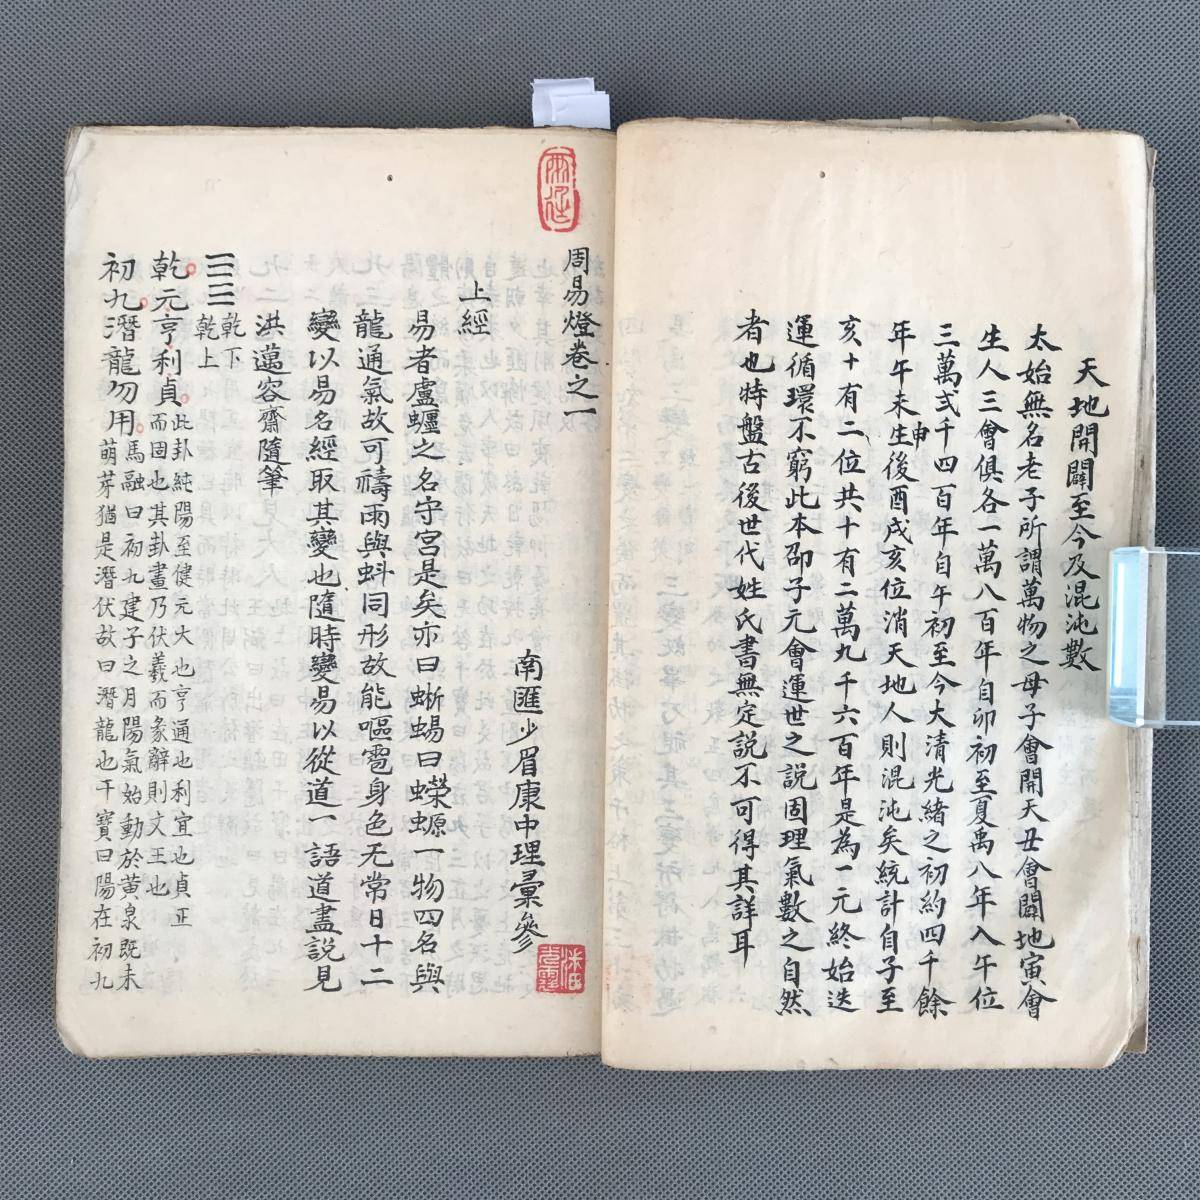 天地開闢至今及混沌數
太始無名老子所謂萬物之母子會開天丑會闢地寅會
生人三會俱各一萬八百年自卯初至夏禹八年入午位
三萬弍千四百年自午初至今大清光緒之初約四千餘
年午未申生後酉戌亥位消天地人則混沌矣統計自子至
亥十有二位共十有二萬九千六百年是為一元終始迭
運循環不窮此本邵子元會運世之說固理氣數之自然
者也特盤古後世代姓氏書無定說不可得其詳耳
周易燈卷之一
南匯少眉康中理彙參
上經
易者盧𧔥之名守宮是矣亦曰蜥蜴曰蠑螈一物四名與
龍通氣故可禱雨與蚪同形故能嘔雹身色无常日十二
變以易名經取其變也隨時變易以從道一語道盡說見
洪邁容齋隨筆
☰☰ 乾下
乾上
乾元亨利貞 此卦純陽至健元大也亨通也利宜也貞正
而固也其卦畫乃伏羲而彖辭則文王也
初九潛龍勿用 馬融曰初九建子之月陽氣始動於黃泉既未
萌芽猶是潛伏故曰潛龍也干寶曰陽在初九